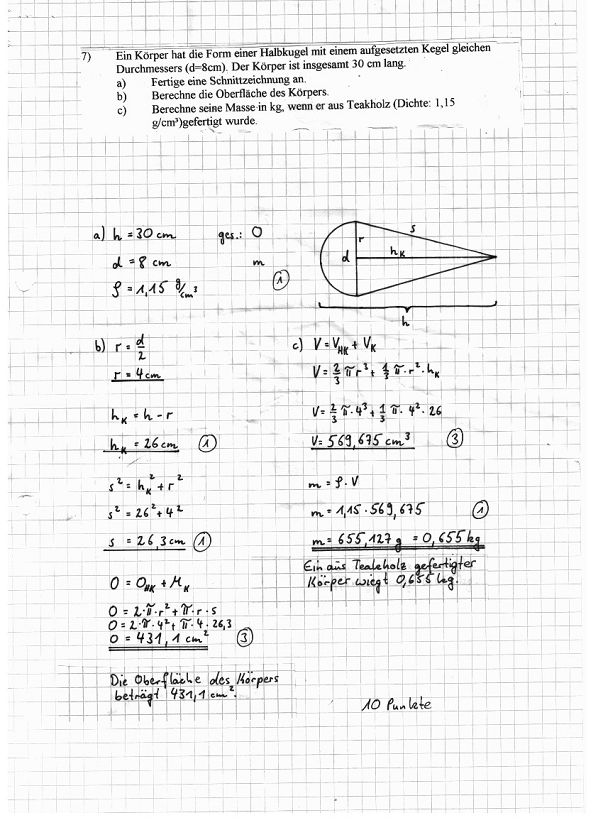 7) Ein Körper hat die Form einer Halbkugel mit einem aufgesetzten Kegel gleichen
Durchmessers (d=8cm). Der Körper ist insgesamt 30 cm lang.
a) Fertige eine Schnittzeichnung an.
b) Berechne die Oberfläche des Körpers.
c) Berechne seine Masse in kg, wenn er aus Teakholz (Dichte: 1,15
g/cm³)gefertigt wurde.
a) h = 30 cm ges.: O
d = 8 cm m
ρ = 1,15 g/cm³ 1
s
r
d
h_K
h
b) r = d/2
r = 4 cm
h_K = h - r
h_K = 26 cm 1
s² = h_K² + r²
s² = 26² + 4²
s = 26,3 cm 1
O = O_HK + M_K
O = 2·π·r² + π·r·s
O = 2·π·4² + π·4·26,3
O = 431,1 cm² 3
Die Oberfläche des Körpers
beträgt 431,1 cm².
c) V = V_HK + V_K
V = 2/3 π r³ + 1/3 π·r²·h_K
V = 2/3 π·4³ + 1/3 π·4²·26
V = 569,675 cm³ 3
m = ρ·V
m = 1,15·569,675 1
m = 655,127 g = 0,655 kg
Ein aus Teakholz gefertigter
Körper wiegt 0,655 kg.
10 Punkte